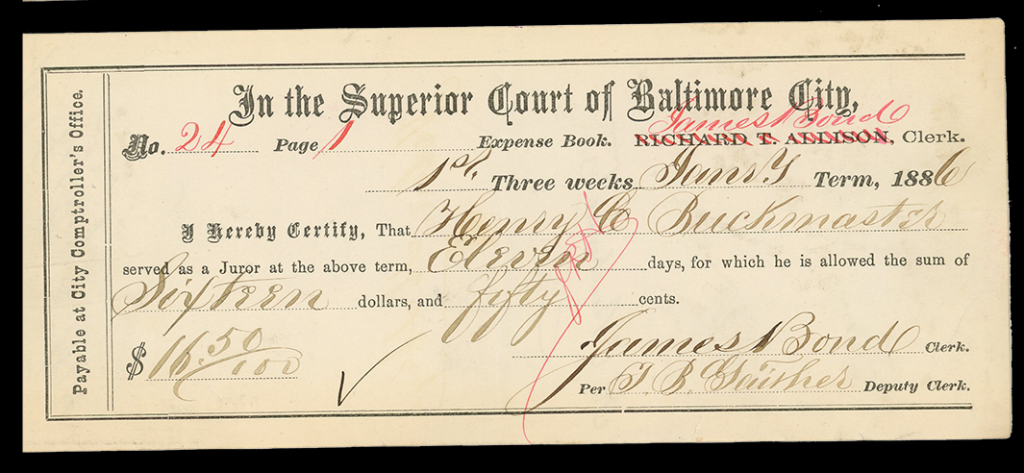 Payable at City Comptroller's Office.
In the Superior Court of Baltimore City,
James Bond
No. 24 Page 1 Expense Book. RICHARD T. ALLISON, Clerk.
1st Three weeks Jany Term, 1886
I Hereby Certify, That Henry C Buckmaster
served as a Juror at the above term, Eleven days, for which he is allowed the sum of
Sixteen dollars, and fifty cents.
$ 16.50/100
James Bond Clerk.
Per Gaither Deputy Clerk.